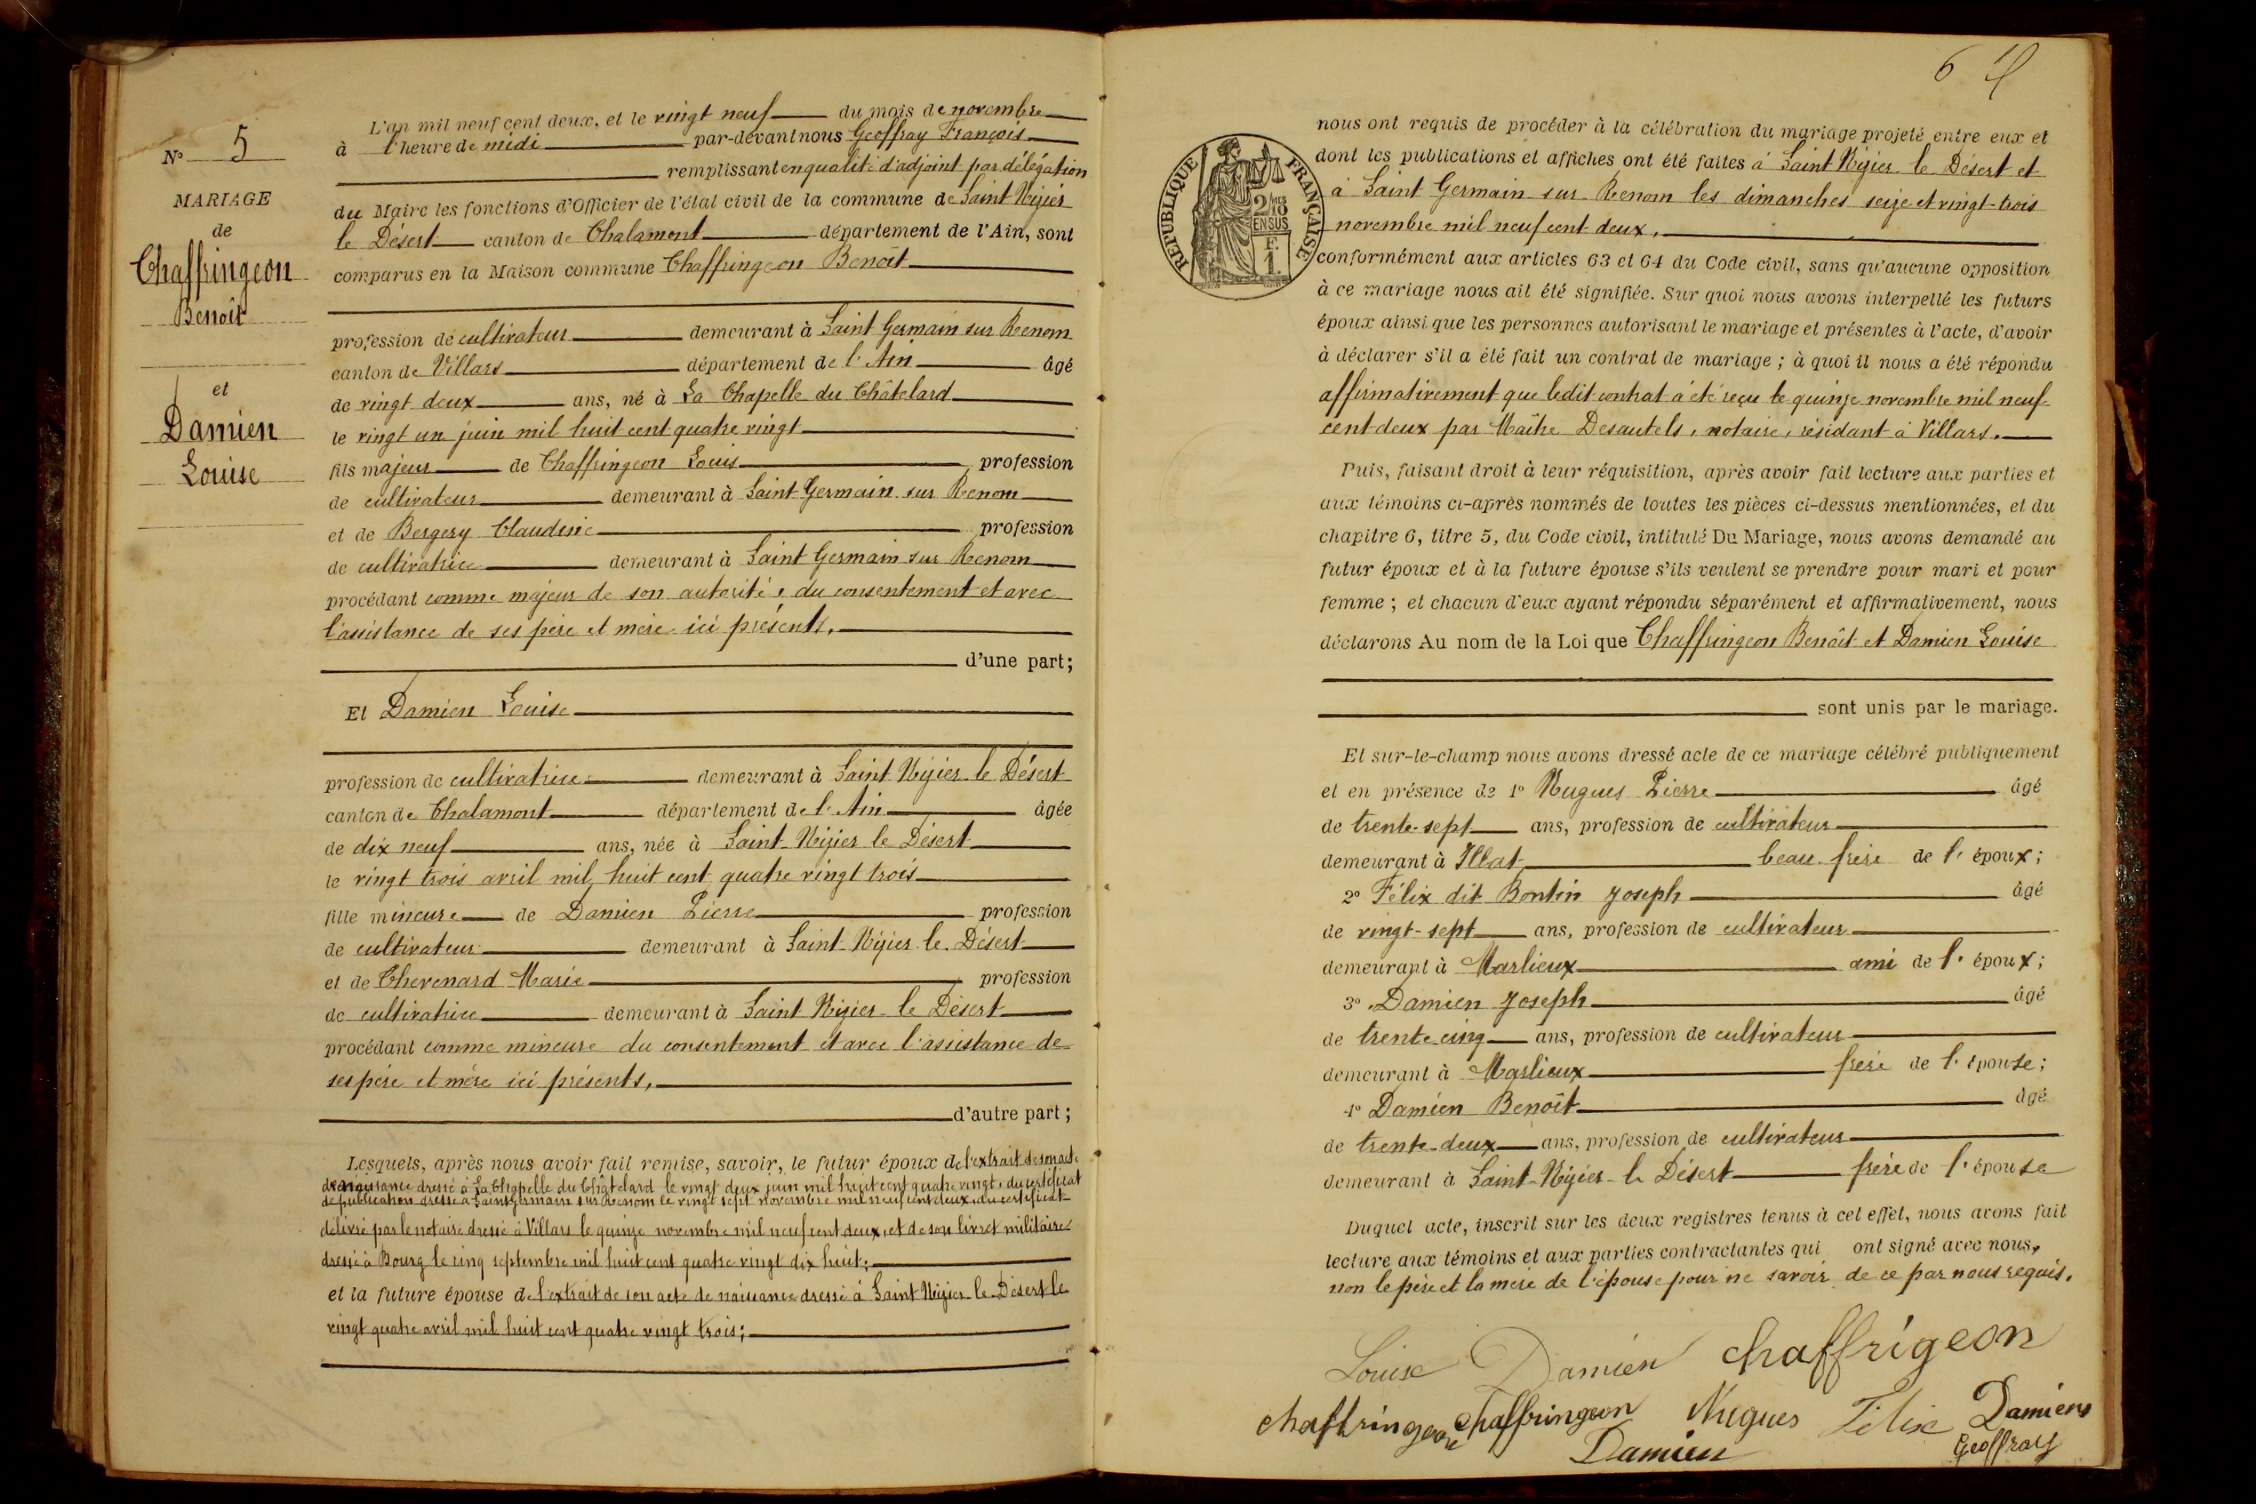 N° 5
MARIAGE
de
Chaffringeon
Benoît
et
Damien
Louise
L'an mil neuf cent deux, et le vingt neuf du mois de novembre
à l'heure de midi par-devant nous Geoffray François
remplissant en qualité d'adjoint par délégation
du Maire les fonctions d'Officier de l'état civil de la commune de Saint Nizier
le Désert canton de Chalamont département de l'Ain, sont
comparus en la Maison commune Chaffringeon Benoît
profession de cultivateur demeurant à Saint Germain sur Renom
canton de Villars département de l'Ain âgé
de vingt deux ans, né à La Chapelle du Châtelard
le vingt un juin mil huit cent quatre vingt
fils majeur de Chaffringeon Louis profession
de cultivateur demeurant à Saint Germain sur Renom
et de Bergery Claudine profession
de cultivatrice demeurant à Saint Germain sur Renom
procédant comme majeur de son autorité, du consentement et avec
l'assistance de ses père et mère ici présents.
d'une part;
Et Damien Louise
profession de cultivatrice demeurant à Saint Nizier le Désert
canton de Chalamont département de l'Ain âgée
de dix neuf ans, née à Saint Nizier le Désert
le vingt trois avril mil huit cent quatre vingt trois
fille mineure de Damien Pierre profession
de cultivateur demeurant à Saint Nizier le Désert
et de Thevenard Marie profession
de cultivatrice demeurant à Saint Nizier le Désert
procédant comme mineure du consentement et avec l'assistance de
ses père et mère ici présents,
d'autre part;
Lesquels, après nous avoir fait remise, savoir, le futur époux de l'extrait de son acte
de naissance dressé à La Chapelle du Châtelard le vingt deux juin mil huit cent quatre vingt, du certificat
de publication dressé à Saint Germain sur Renom le vingt sept novembre mil neuf cent deux, du certificat
délivré par le notaire dressé à Villars le quinze novembre mil neuf cent deux, et de son livret militaire
dressé à Bourg le cinq septembre mil huit cent quatre vingt dix huit;
et la future épouse de l'extrait de son acte de naissance dressé à Saint Nizier le Désert le
vingt quatre avril mil huit cent quatre vingt trois;
6
RÉPUBLIQUE FRANÇAISE
2/10 EN SUS
F. 1.
nous ont requis de procéder à la célébration du mariage projeté entre eux et
dont les publications et affiches ont été faites à Saint Nizier le Désert et
à Saint Germain sur Renom les dimanches seize et vingt-trois
novembre mil neuf cent deux,
conformément aux articles 63 et 64 du Code civil, sans qu'aucune opposition
à ce mariage nous ait été signifiée. Sur quoi nous avons interpellé les futurs
époux ainsi que les personnes autorisant le mariage et présentes à l'acte, d'avoir
à déclarer s'il a été fait un contrat de mariage; à quoi il nous a été répondu
affirmativement que ledit contrat a été reçu le quinze novembre mil neuf
cent deux par Maître Desautels, notaire, résidant à Villars.
Puis, faisant droit à leur réquisition, après avoir fait lecture aux parties et
aux témoins ci-après nommés de toutes les pièces ci-dessus mentionnées, et du
chapitre 6, titre 5, du Code civil, intitulé Du Mariage, nous avons demandé au
futur époux et à la future épouse s'ils veulent se prendre pour mari et pour
femme; et chacun d'eux ayant répondu séparément et affirmativement, nous
déclarons Au nom de la Loi que Chaffringeon Benoît et Damien Louise
sont unis par le mariage.
Et sur-le-champ nous avons dressé acte de ce mariage célébré publiquement
et en présence de 1° Nugues Pierre âgé
de trente-sept ans, profession de cultivateur
demeurant à Illiat beau-frère de l'époux;
2° Félix dit Bontin Joseph âgé
de vingt-sept ans, profession de cultivateur
demeurant à Marlieux ami de l'époux;
3° Damien Joseph âgé
de trente cinq ans, profession de cultivateur
demeurant à Marlieux frère de l'épouse;
4° Damien Benoît âgé
de trente-deux ans, profession de cultivateur
demeurant à Saint-Nizier le Désert frère de l'épouse
Duquel acte, inscrit sur les deux registres tenus à cet effet, nous avons fait
lecture aux témoins et aux parties contractantes qui ont signé avec nous,
non le père et la mère de l'épouse pour ne savoir de ce par nous requis.
Louise Damien chaffrigeon
chaffringeon chaffringeon Nugues Félix Damien
Damien Geoffray